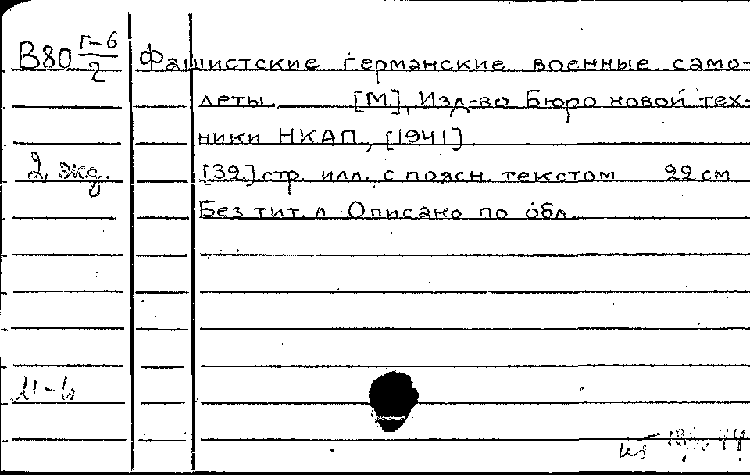 В80 Г-6/2
Фашистские германские военные само-
леты. [М], Изд-во Бюро новой тех-
ники НКАП, [1941]
2 экз.
[39] стр. илл. с поясн. текстом 22 см
Без тит. л. Описано по обл.